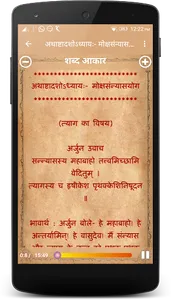 12:22
अथाष्टादशोऽध्यायः- मोक्षसंन्यास...
शब्द आकार
अथाष्टादशोऽध्यायः- मोक्षसंन्यासयोग
(त्याग का विषय)
अर्जुन उवाच
सन्न्यासस्य महाबाहो तत्त्वमिच्छामि
वेदितुम् ।
त्यागस्य च हृषीकेश पृथक्केशिनिषूदन
॥
भावार्थ : अर्जुन बोले- हे महाबाहो! हे
अन्तर्यामिन्! हे वासुदेव! मैं संन्यास
और त्याग के तत्व को पृथक्‌-पृथक्‌